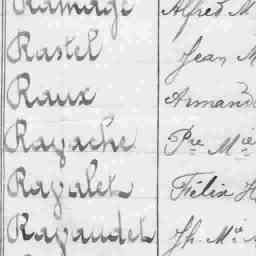 Ramage Alfred M
Rastel Jean M
Raux Armand
Rayache Pre Mie
Rayalet Félix H
Rayaudet Jh. Mie